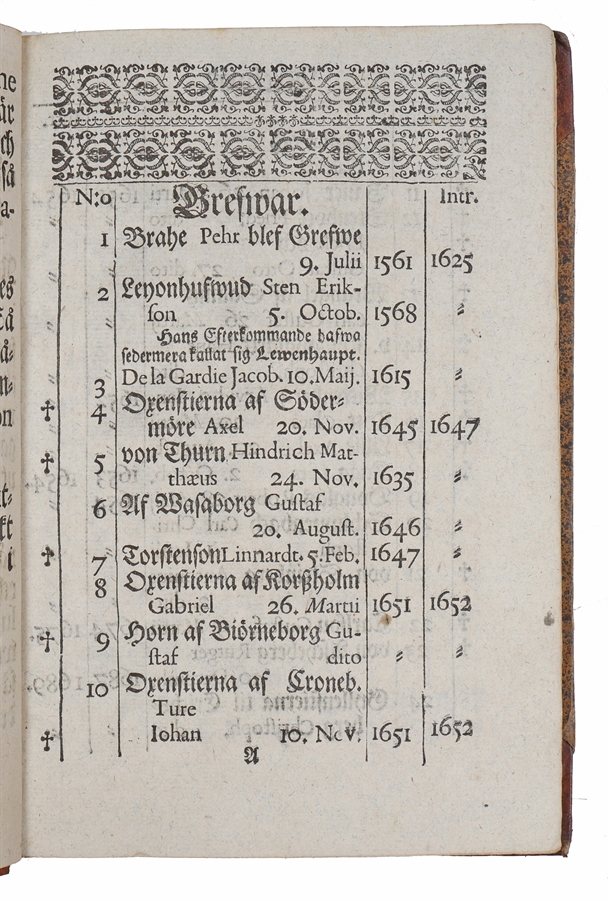 N:o Grefwar. Intr.
1 Brahe Pehr blef Grefwe
9. Julii 1561 1625
2 Leyonhufwud Sten Erik-
son 5. Octob. 1568 〃
Hans Efterkommande hafwa
sedermera kallat sig Lewenhaupt.
3 De la Gardie Jacob. 10. Maij. 1615 〃
† 4 Oxenstierna af Söder-
möre Axel 20. Nov. 1645 1647
† 5 von Thurn Hindrich Mat-
thæus 24. Nov. 1635 〃
6 Af Wasaborg Gustaf
20. August. 1646 〃
† 7 Torstenson Linnardt. 5. Feb. 1647 〃
8 Oxenstierna af Korßholm
Gabriel 26. Martii 1651 1652
† 9 Horn af Biörneborg Gu-
staf dito 〃 〃
10 Oxenstierna af Croneb.
Ture
† Iohan 10. Nov. 1651 1652
A